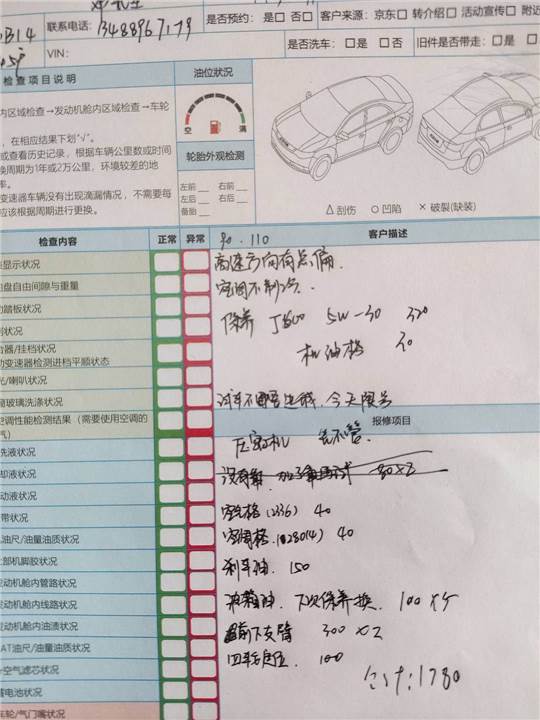 是否预约：是□ 否□ 客户来源：京东□ 转介绍□ 活动宣传□ 附近
联系电话：13488967179
VIN：
是否洗车：□是 □否 旧件是否带走：□是
检查项目说明
油位状况
内区域检查→发动机舱内区域检查→车轮
空 满
，在相应结果下划“√”。
或查看历史记录，根据车辆公里数或时间
换周期为1年或2万公里，环境较差的地
率。
轮胎外观检测
变速器车辆没有出现滴漏情况，不需要每
应该根据周期进行更换。
左前 右前
左后 右后
备胎
△刮伤 ○凹陷 ×破裂(缺装)
检查内容 正常 异常 客户描述
90．110
显示状况
高速方向有点偏．
盘自由间隙与重量
空调不制冷．
踏板状况
保养 J500 5W-30 320
器/挂档状况
机油格 20
动变速器检测进档平顺状态
/喇叭状况
玻璃洗涤状况
试车不需要 ，今天限号
空调性能检测结果（需要使用空调的
气）
报修项目
压缩机 先不管．
洗液状况
却液状况
80×2
动液状况
空气格（2336）40
带状况
油尺/油量油质状况
空调格．（28014）40
部机脚胶状况
刹车油．150
发动机舱内管路状况
发动机舱内线路状况
下次保养换．100×5
发动机舱内油渍状况
前下支臂 300×2
AT油尺/油量油质状况
四轮定位．100
空气滤芯状况
合计：1780
蓄电池状况
车轮/气门嘴状况